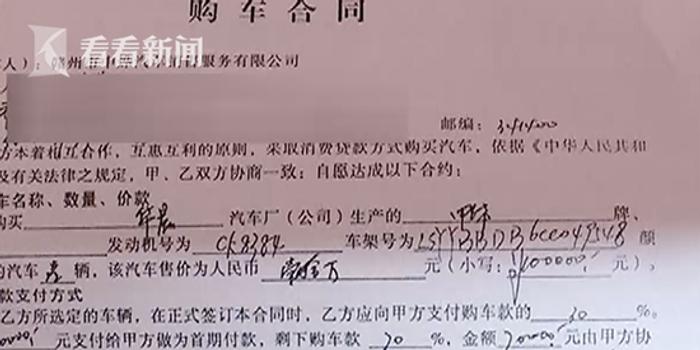 购车合同
看看新闻
人）：赣州市 汽车 服务有限公司
邮编：341400
方本着相互合作，互惠互利的原则，采取消费贷款方式购买汽车，依据《中华人民共和
及有关法律之规定，甲、乙双方协商一致：自愿达成以下合约：
车名称、数量、价款
购买 华晨 汽车厂（公司）生产的 牌、
发动机号为 车架号为 颜
的汽车 辆，该汽车售价为人民币 元（小写：100000！元），
款支付方式
乙方所选定的车辆，在正式签订本合同时，乙方应向甲方支付购车款的 30 %。
元支付给甲方做为首期付款，剩下购车款 70 %，金额 70000！元由甲方协